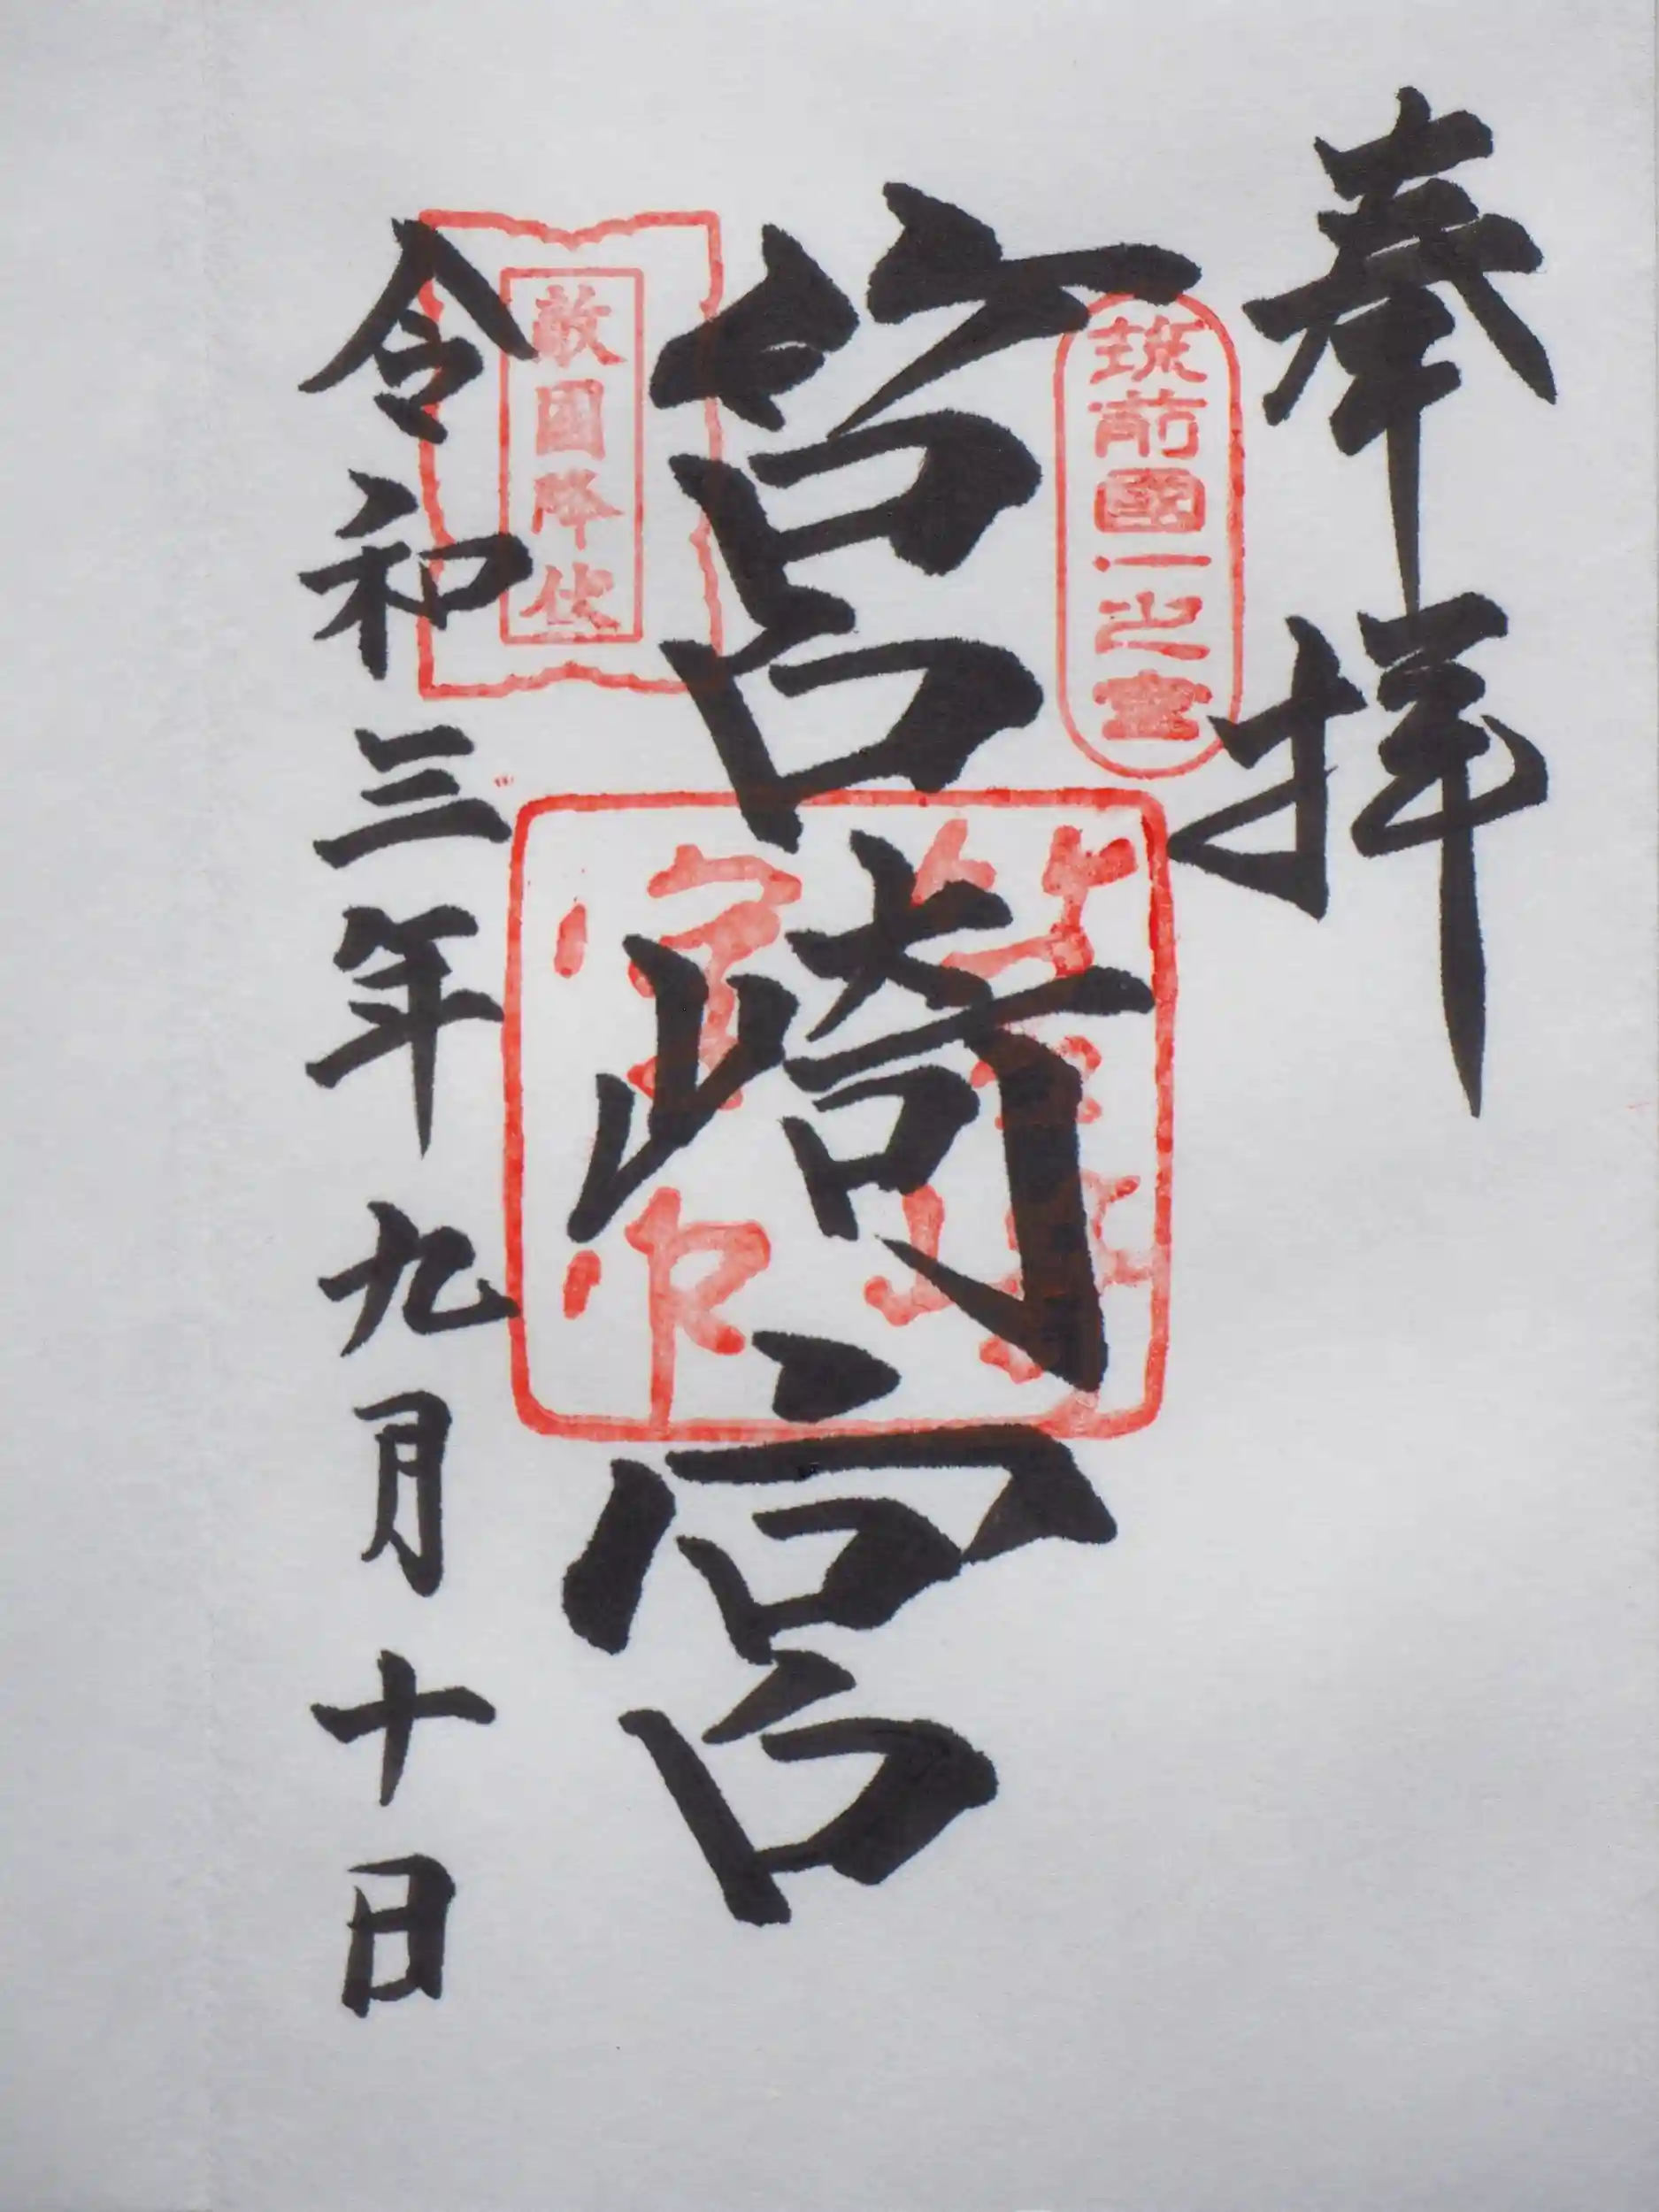 奉拝
筑前國一之宮
筥崎宮
敵國降伏
令和三年九月十日